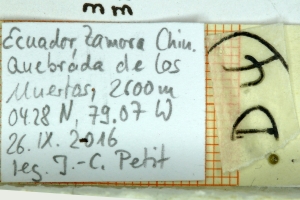 mm
Ecuador, Zamora Chin.
Quebrada de los
Muertos, 2600m
04.28 N, 79.07 W
26.IX.2016
leg. J.-C. Petit
D4